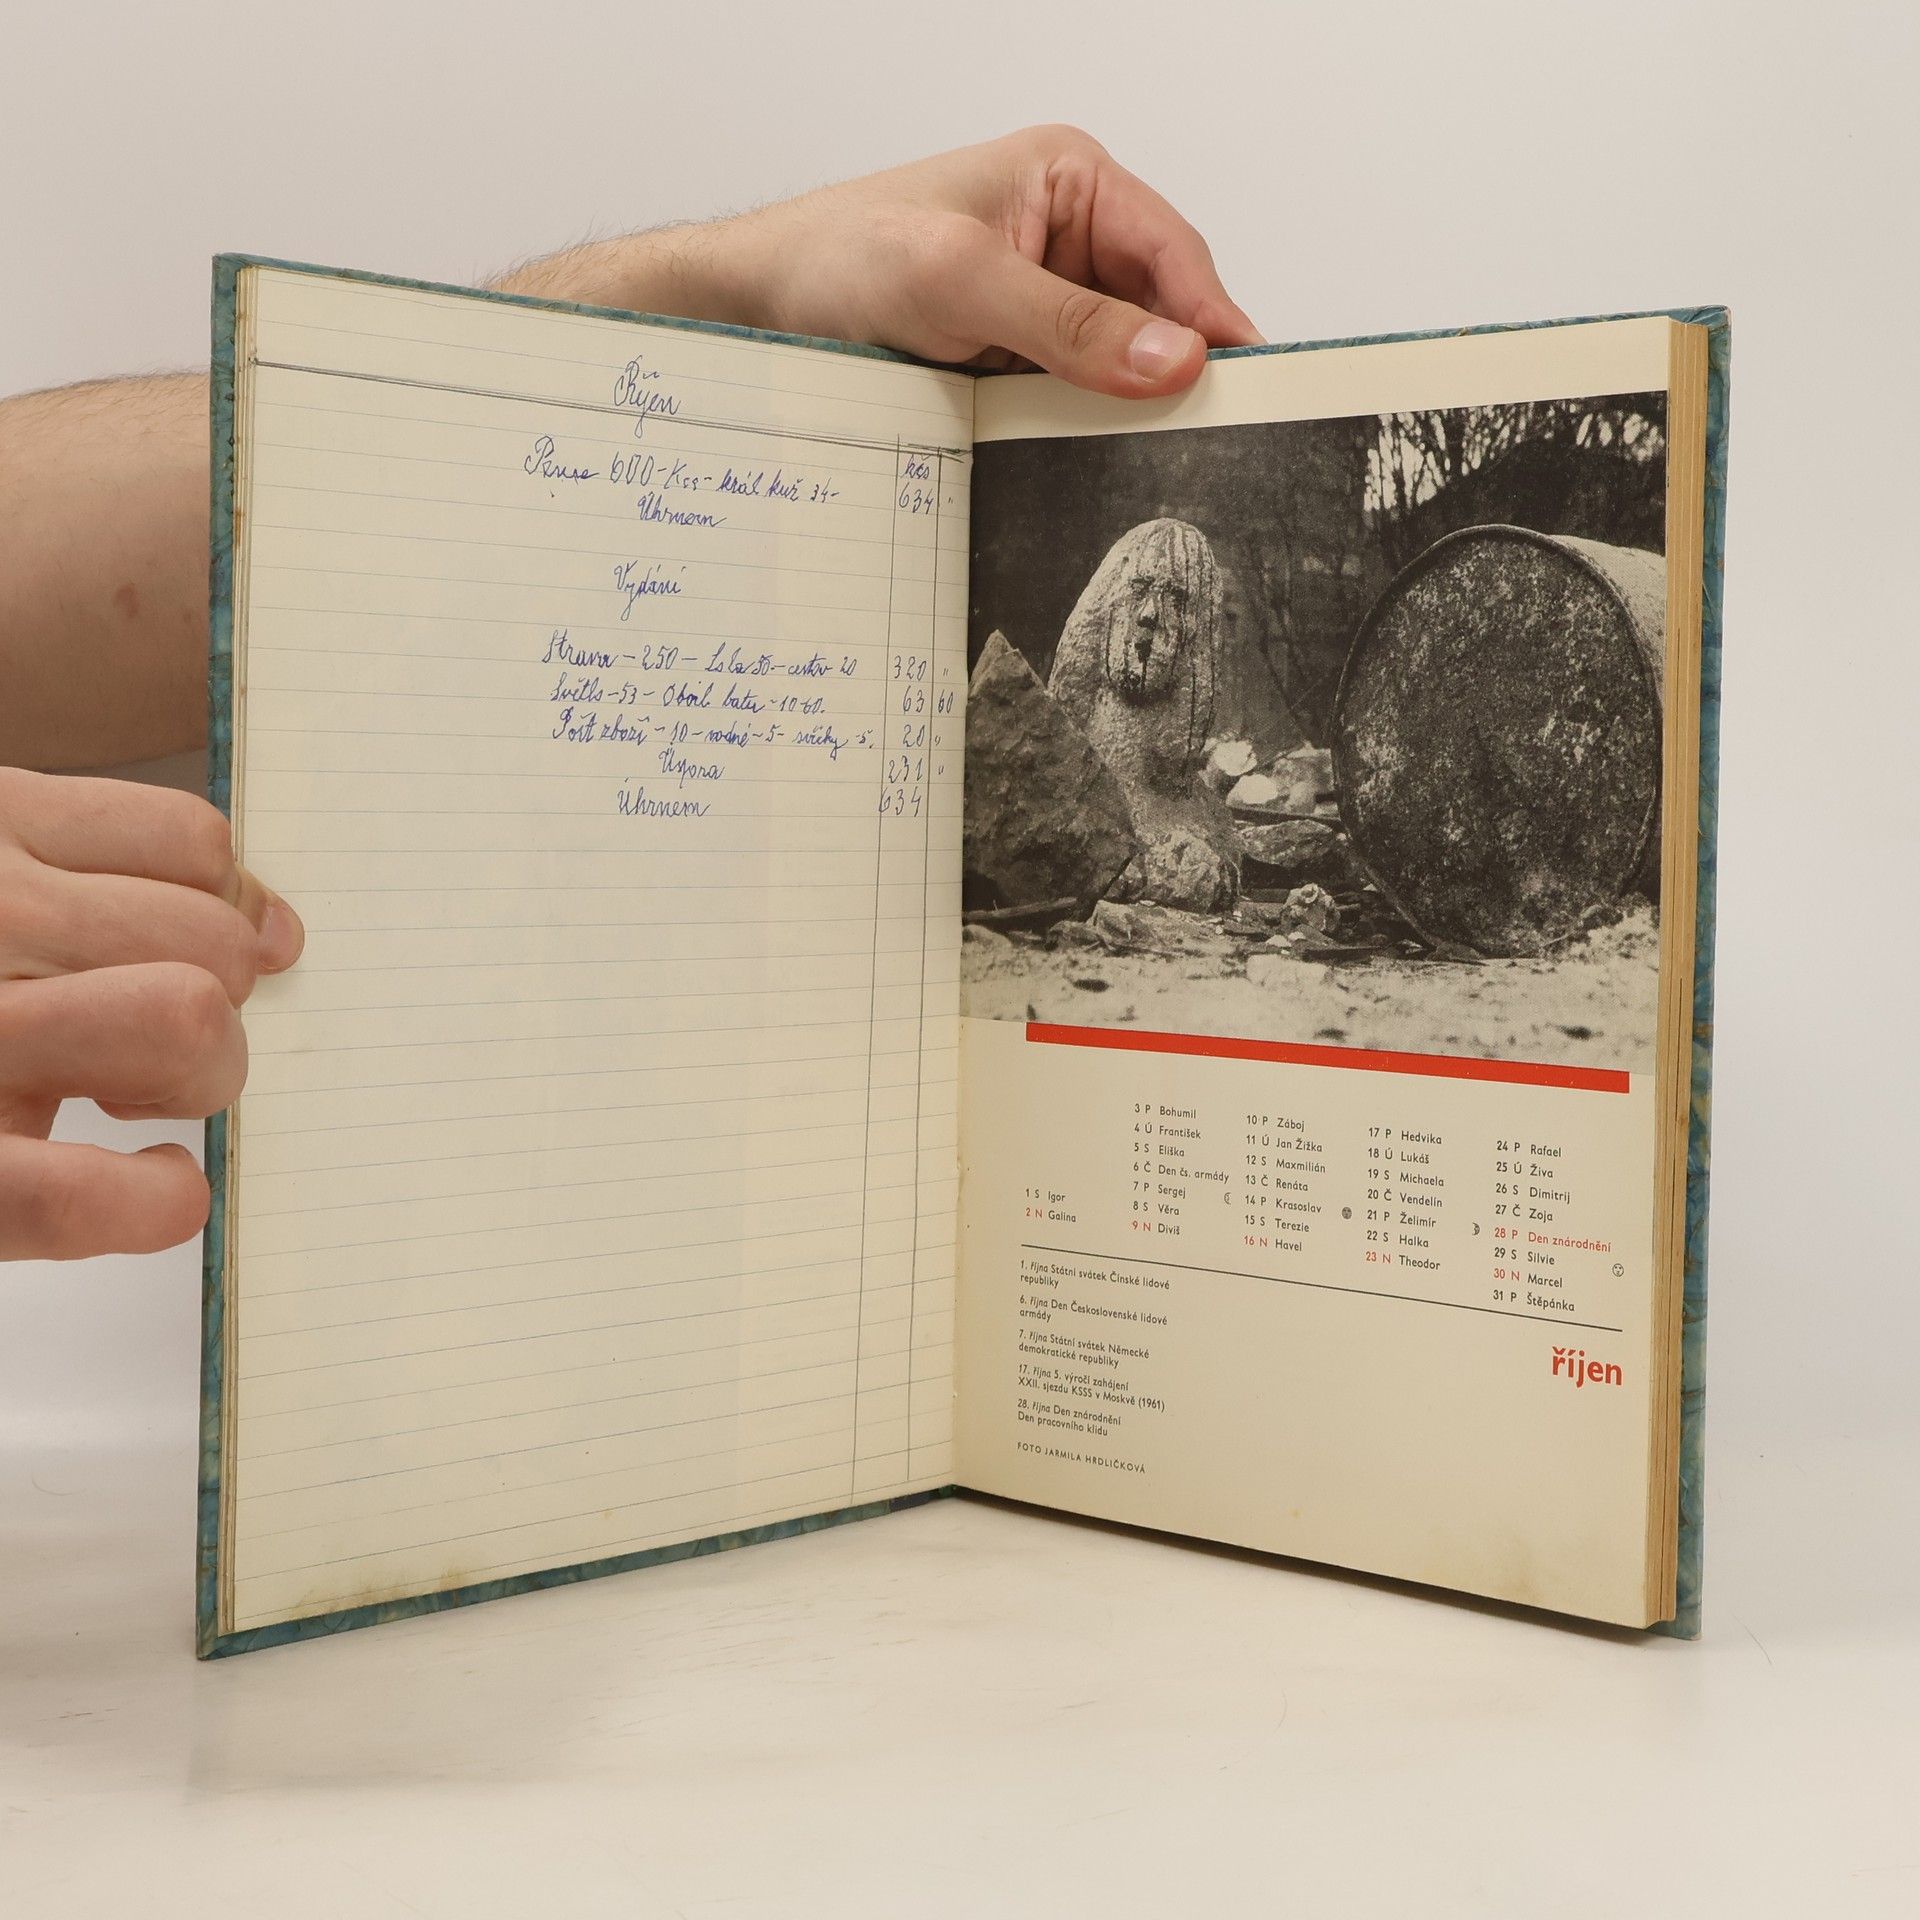 Říjen
600 - Kčs - král kuž 34-
Úhrnem
kčs
634 "
Vydání
Strava - 250 - 50 - cestov 20 320 "
Světlo - 53 - Obcil bater - 10-60. 63 60
zboží - 10 - vodné - 5 - svíčky - 5. 20 "
Úspora 231 "
Úhrnem 634
1 S Igor
2 N Galina
3 P Bohumil
4 Ú František
5 S Eliška
6 Č Den čs. armády
7 P Sergej
8 S Věra
9 N Diviš
10 P Záboj
11 Ú Jan Žižka
12 S Maxmilián
13 Č Renáta
14 P Krasoslav
15 S Terezie
16 N Havel
17 P Hedvika
18 Ú Lukáš
19 S Michaela
20 Č Vendelín
21 P Želimír
22 S Halka
23 N Theodor
24 P Rafael
25 Ú Živa
26 S Dimitrij
27 Č Zoja
28 P Den znárodnění
29 S Silvie
30 N Marcel
31 P Štěpánka
1. října Státní svátek Čínské lidové
republiky
6. října Den Československé lidové
armády
7. října Státní svátek Německé
demokratické republiky
17. října 5. výročí zahájení
XXII. sjezdu KSSS v Moskvě (1961)
28. října Den znárodnění
Den pracovního klidu
FOTO JARMILA HRDLIČKOVÁ
říjen